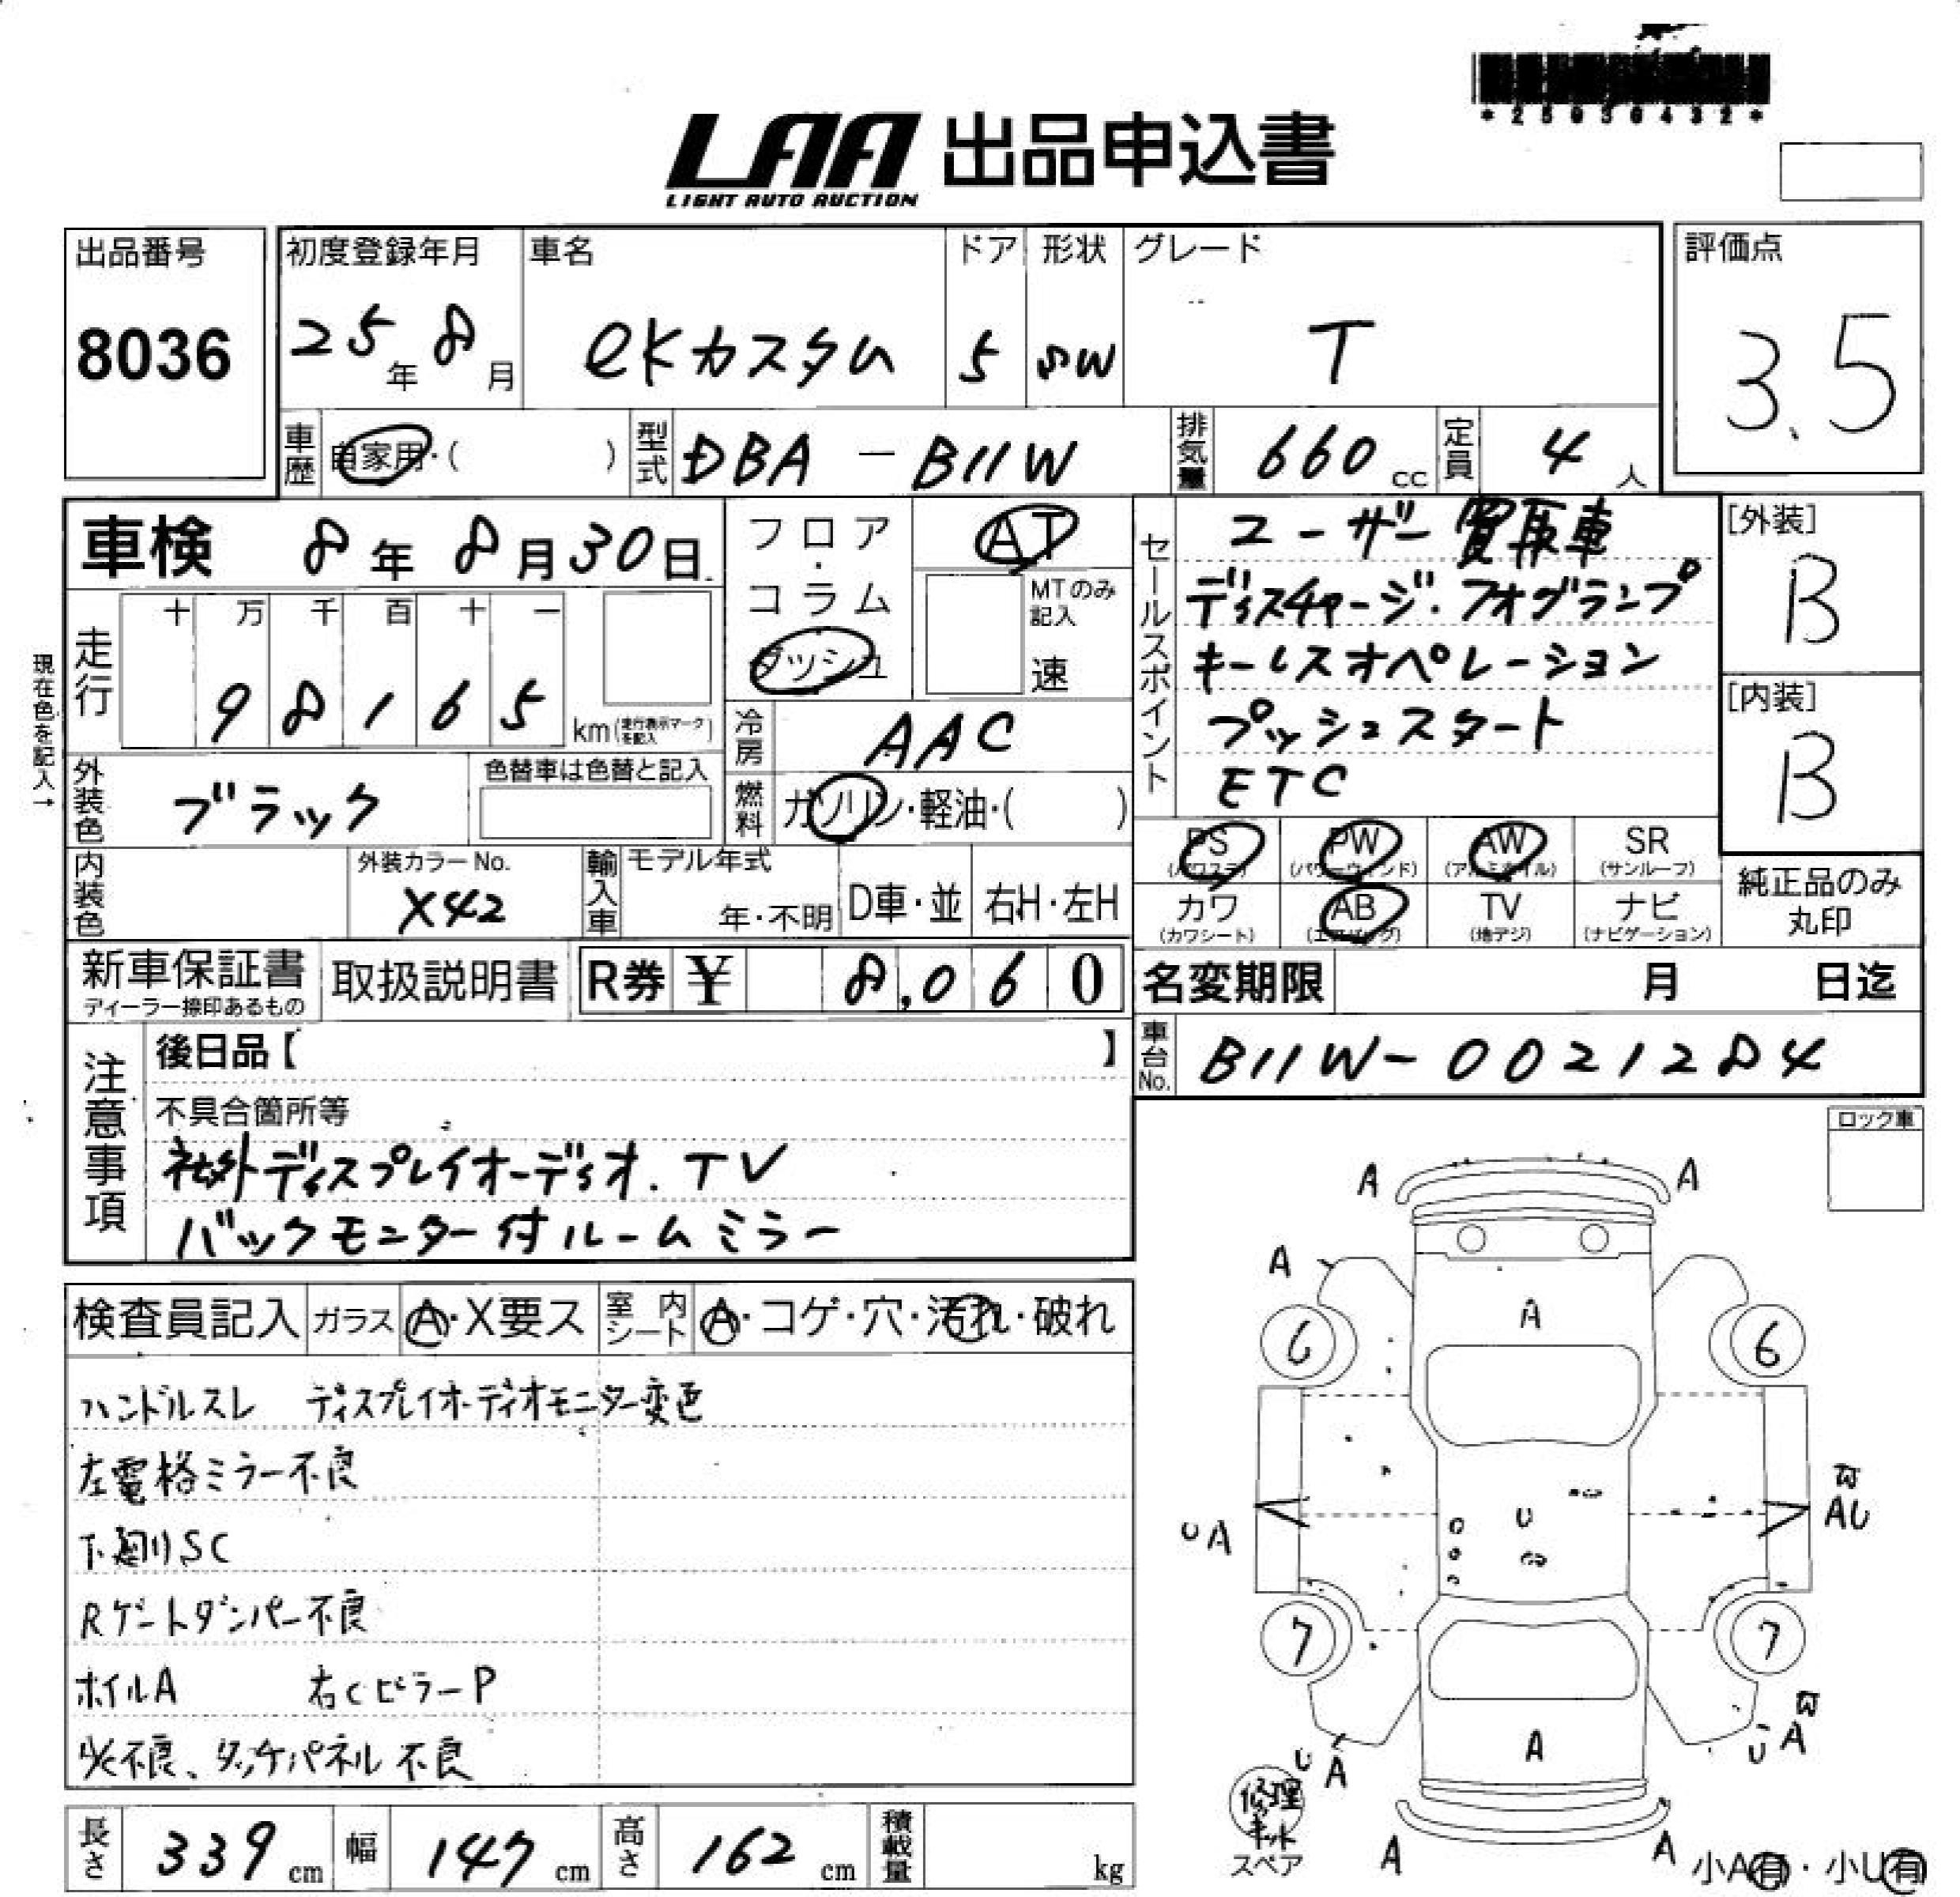 *25030432*
LAA 出品申込書
LIGHT AUTO AUCTION
出品番号 8036
初度登録年月 25年 8月
車名 eKカスタム
ドア 5
形状 SW
グレード T
評価点 3.5
車歴 自家用・( )
型式 DBA-B11W
排気量 660cc
定員 4人
車検 8年 8月 30日
フロア・コラム
ダッシュ
AT
MTのみ記入
速
セールスポイント
ユーザー買取車
ディスチャージ・フォグランプ
キーレスオペレーション
プッシュスタート
ETC
[外装] B
[内装] B
現在色を記入→
走行 十 万 千 百 十 一
98165 km (走行表示マークを記入)
冷房 AAC
外装色 ブラック
色替車は色替と記入
燃料 ガソリン・軽油・( )
内装色
外装カラーNo. X42
輸入車 モデル年式 年・不明 D車・並 右H・左H
PS (パワステ) PW (パワーウィンド) AW (アルミホイル) SR (サンルーフ)
カワ (カワシート) AB (エアバッグ) TV (地デジ) ナビ (ナビゲーション)
純正品のみ丸印
新車保証書 ディーラー捺印あるもの
取扱説明書
R券 ¥ 8,060
名変期限 月 日迄
車台No. B11W-0021284
注意事項
後日品【 】
不具合箇所等
社外ディスプレイオーディオ.TV
バックモニター付ルームミラー
ロック車
検査員記入 ガラス A・X要ス 室内シート A・コゲ・穴・汚れ・破れ
ハンドルスレ ディスプレイオーディオモニター変色
左電格ミラー不良
下廻りSC
Rゲートダンパー不良
ホイルA 右Cピラー P
タッチパネル不良
A A
A
A
6 6
U A
U
AU
7 7
A
U A
U A
A A
修理キット
スペア
小A有・小U有
長さ 339cm 幅 147cm 高さ 162cm 積載量 kg